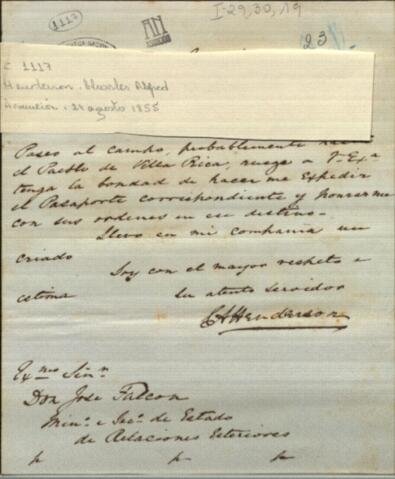 1117
I-29,30,19
23
C 1117
Henderson, Charles Alfred
Asunción, 24 agosto 1855
Paseo al campo, probablemente
el Pueblo de Villa Rica, ruego a V. Exª
tenga la bondad de hacer me Expedir
el Pasaporte correspondiente y honrarme
con sus ordenes en ese destino.
Llevo en mi compania un
criado
Soy con el mayor respeto e
estima Su atento servidor
CAHenderson
Exmo Siñr
Don Jose Falcon
Minº e Secº de Estado
de Relaciones Exteriores
p p p